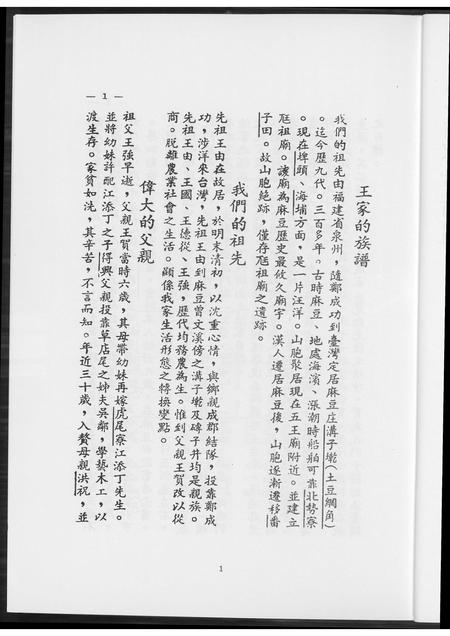 王家的族譜
我們的祖先由福建省泉州，隨鄭成功到臺灣定居麻豆庄溝子墘(土豆綢角)
。迄今歷九代。三百多年。古時麻豆、地處海濱、漲潮時船舶可靠北勢寮
。現在埤頭、海埔方面，是一片汪洋。山胞聚居現在五王廟附近。並建立
尫祖廟。該廟為麻豆歷史最攸久廟宇。漢人遷居麻豆後，山胞逐漸遷移番
子田。故山胞絶跡，僅存尫祖廟之遺跡。
我們的祖先
先祖王由在故居，於明末清初，以沈重心情，與鄉親成郡結隊，投靠鄭成
功，涉洋來台灣，先祖王由到麻豆曾文溪傍之溝子墘及磚子井均是親族。
先祖王由、王國、王德從、王強，歷代均務農為生。惟到父親王賀改以從
商。脱離農業社會之生活。顧係我家生活形態之轉換變點。
偉大的父親
祖父王強早逝，父親王賀當時六歲，其母帶幼妹再嫁虎尾寮江添丁先生。
並將幼妹許配江添丁之子得興父親投靠草店尾之姊夫吳鄰，學藝木工，以
渡生存。家貧如洗，其辛苦，不言而知。年近三十歲，入贅母親洪祝，並
— 1 —
1